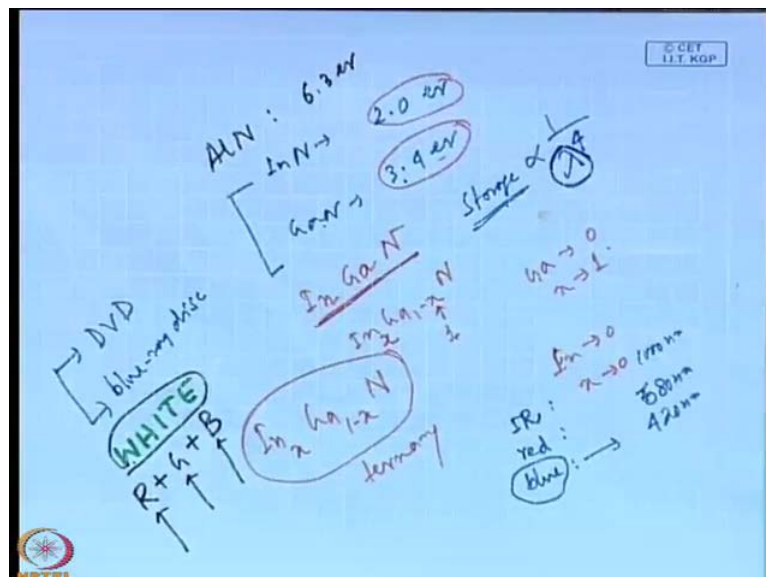 © CET
I.I.T. KGP
AlN : 6.3 eV
InN → 2.0 eV
GaN → 3.4 eV
Storage ∝ 1/λ⁴
InGaN
InₓGa₁₋ₓN
1
Ga → 0
x → 1.
In → 0
x → 0
InₓGa₁₋ₓN
ternary
→ DVD
→ blue-ray disc
WHITE
R + G + B
IR : 1000 nm
red : 680 nm
blue : → 420 nm
NPTEL